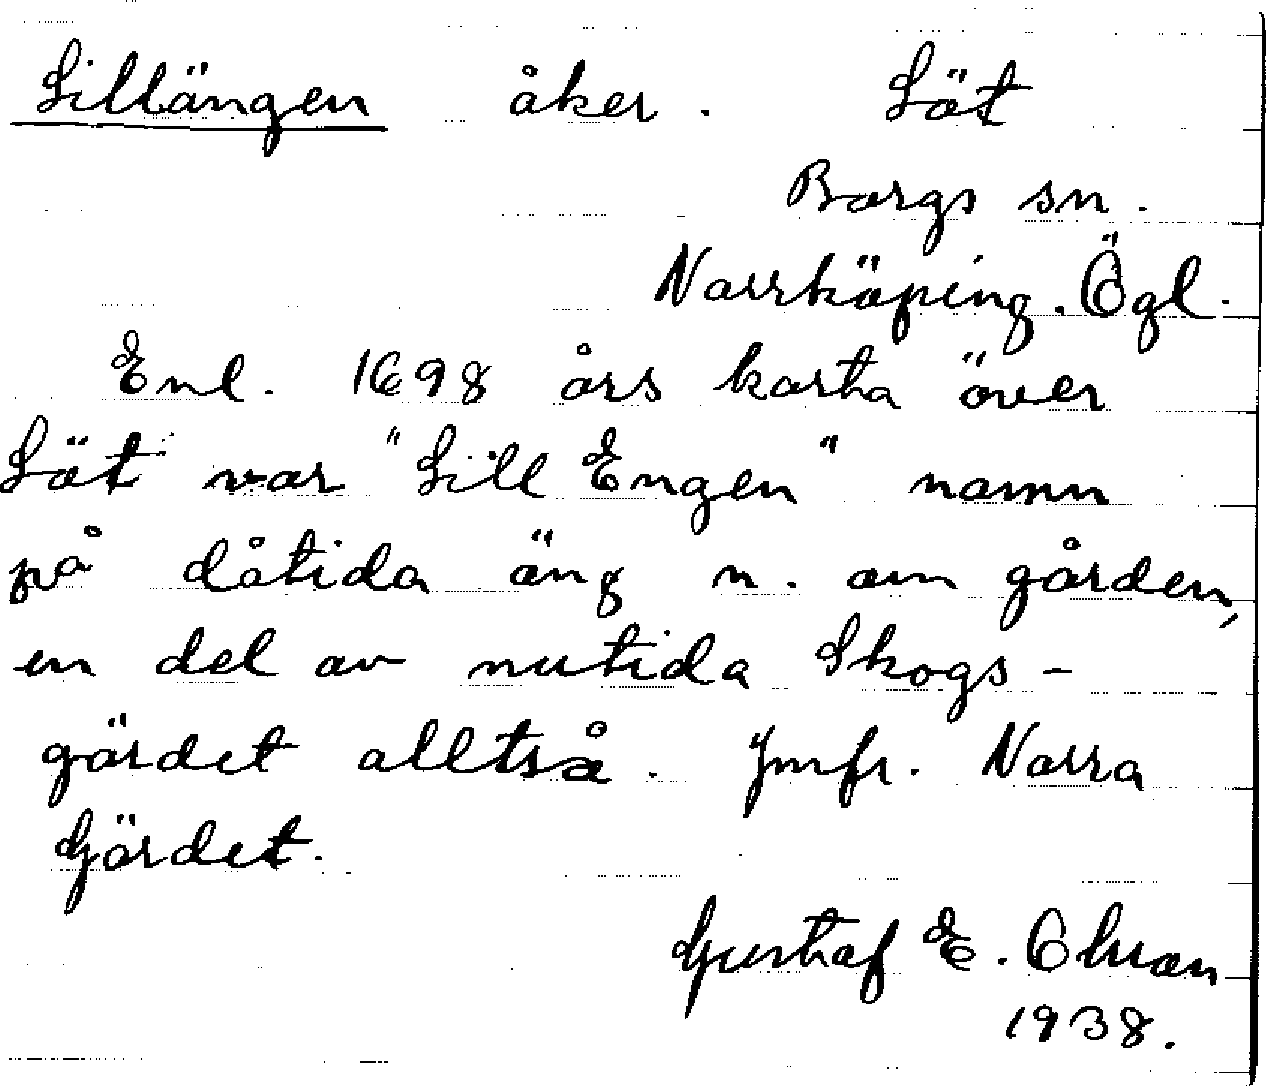 Lillängen åker. Löt
Borgs sn.
Norrköping. Ögl.
Enl. 1698 års karta över
Löt var "Lill Engen" namn
på dåtida äng n. om gården,
en del av nutida Skogs-
gärdet alltså. Jmfr. Norra
Gärdet.
Gustaf E. Olsson
1938.